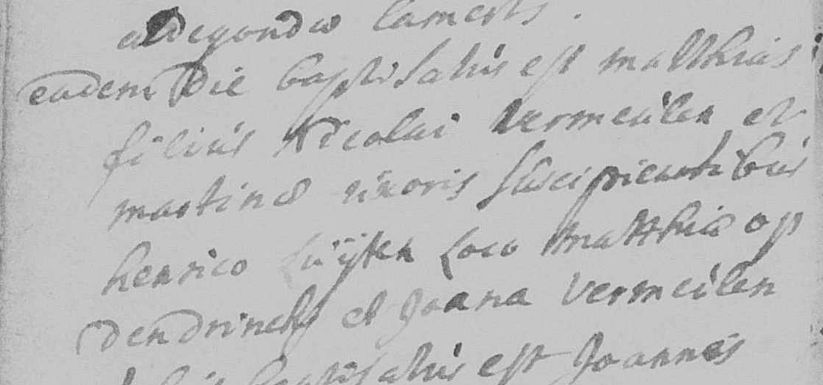 aldegondæ Camerts.
eadem Die baptisatus est matthias
filius Nicolai vermeulen et
martinæ uxoris suscipientibus
henrico Luijten Loco matthiæ op
dendrinck et Joana vermeulen
baptisatus est Joannes